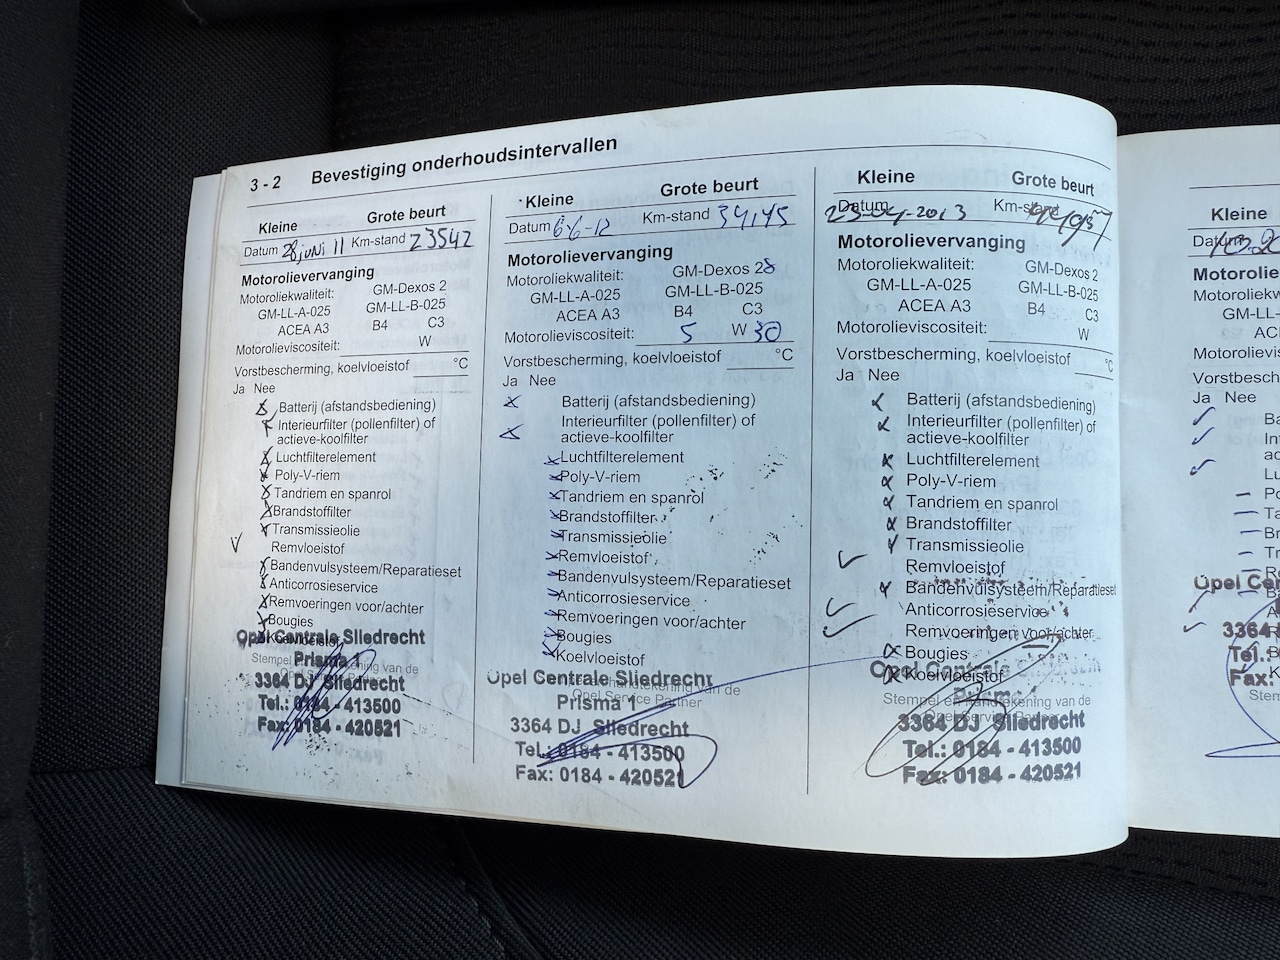 3 - 2 Bevestiging onderhoudsintervallen
Kleine Grote beurt
Datum 28 juni 11 Km-stand 23542
Motorolievervanging
Motoroliekwaliteit: GM-Dexos 2
GM-LL-A-025 GM-LL-B-025
ACEA A3 B4 C3
Motorolieviscositeit: W
Vorstbescherming, koelvloeistof °C
Ja Nee
Batterij (afstandsbediening)
Interieurfilter (pollenfilter) of
actieve-koolfilter
Luchtfilterelement
Poly-V-riem
Tandriem en spanrol
Brandstoffilter
Transmissieolie
Remvloeistof
Bandenvulsysteem/Reparatieset
Anticorrosieservice
Remvoeringen voor/achter
Bougies
Koelvloeistof
Opel Centrale Sliedrecht
Prisma 1
3364 DJ Sliedrecht
Tel.: 0184 - 413500
Fax: 0184 - 420521
Kleine Grote beurt
Datum 6-6-12 Km-stand 34145
Motorolievervanging
Motoroliekwaliteit: GM-Dexos 2
GM-LL-A-025 GM-LL-B-025
ACEA A3 B4 C3
Motorolieviscositeit: 5 W 30
Vorstbescherming, koelvloeistof °C
Ja Nee
Batterij (afstandsbediening)
Interieurfilter (pollenfilter) of
actieve-koolfilter
Luchtfilterelement
Poly-V-riem
Tandriem en spanrol
Brandstoffilter
Transmissieolie
Remvloeistof
Bandenvulsysteem/Reparatieset
Anticorrosieservice
Remvoeringen voor/achter
Bougies
Koelvloeistof
Opel Centrale Sliedrecht
Opel Service Partner
Prisma 1
3364 DJ Sliedrecht
Tel.: 0184 - 413500
Fax: 0184 - 420521
Kleine Grote beurt
Datum 23-04-2013 Km-stand
Motorolievervanging
Motoroliekwaliteit: GM-Dexos 2
GM-LL-A-025 GM-LL-B-025
ACEA A3 B4 C3
Motorolieviscositeit: W
Vorstbescherming, koelvloeistof °C
Ja Nee
Batterij (afstandsbediening)
Interieurfilter (pollenfilter) of
actieve-koolfilter
Luchtfilterelement
Poly-V-riem
Tandriem en spanrol
Brandstoffilter
Transmissieolie
Remvloeistof
Bandenvulsysteem/Reparatieset
Anticorrosieservice
Remvoeringen voor/achter
Bougies
Koelvloeistof
Opel Centrale
Stempel en handtekening van de
Prisma
3364 DJ Sliedrecht
Tel.: 0184 - 413500
Fax: 0184 - 420521
Kleine
Datum
Motorolie
Motoroliekw
GM-LL-
ACE
Motorolievis
Vorstbesch
Ja Nee
Opel Cen
3364
Tel.:
Fax:
Stem